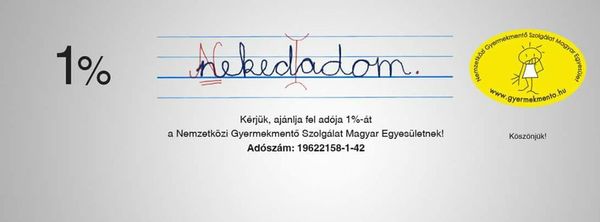 1%
Nekedadom.
Kérjük, ajánlja fel adója 1%-át
a Nemzetközi Gyermekmentő Szolgálat Magyar Egyesületnek!
Adószám: 19622158-1-42
Nemzetközi Gyermekmentő Szolgálat Magyar Egyesület
www.gyermekmento.hu
Köszönjük!